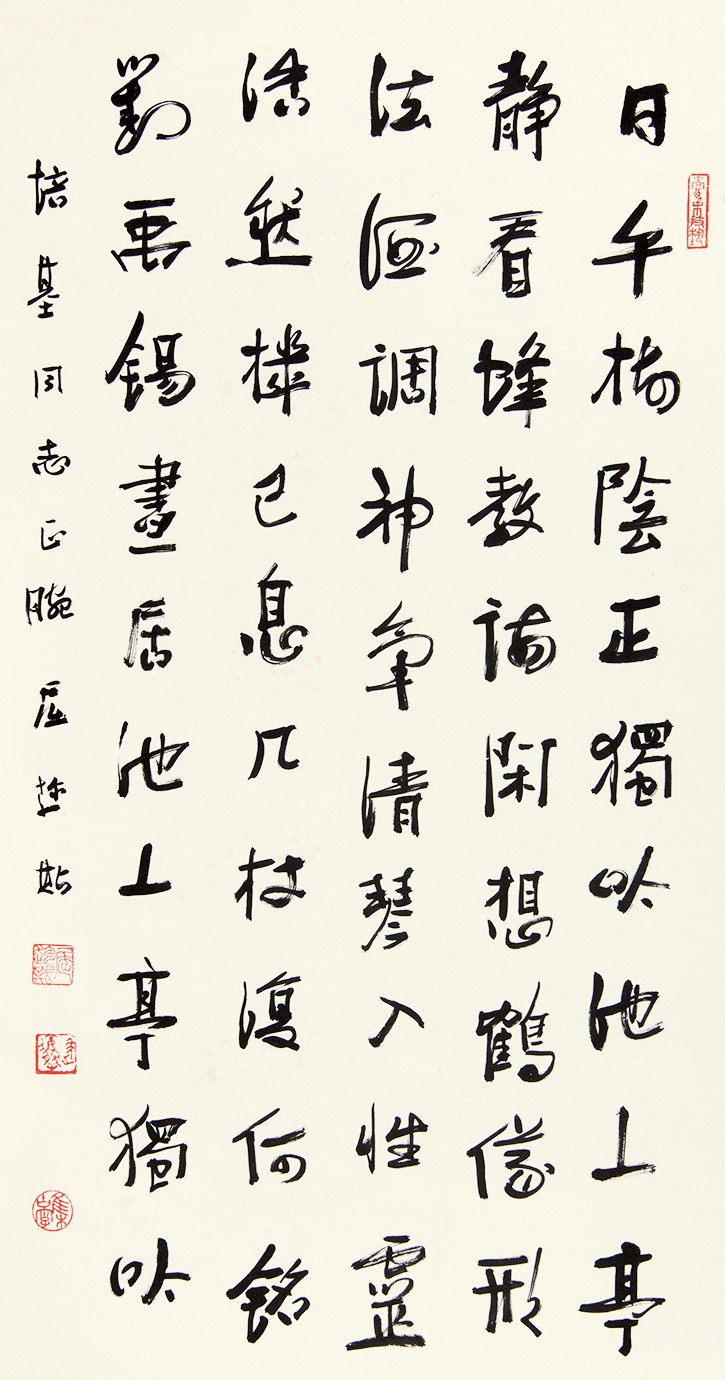 日午樹陰正獨吟池上亭
静看蜂教誨閑想鶴儀形
法酒調神氣清琴入性靈
浩然機已息几杖復何銘
劉禹錫晝居池上亭獨吟
培基同志正腕屈趁斯